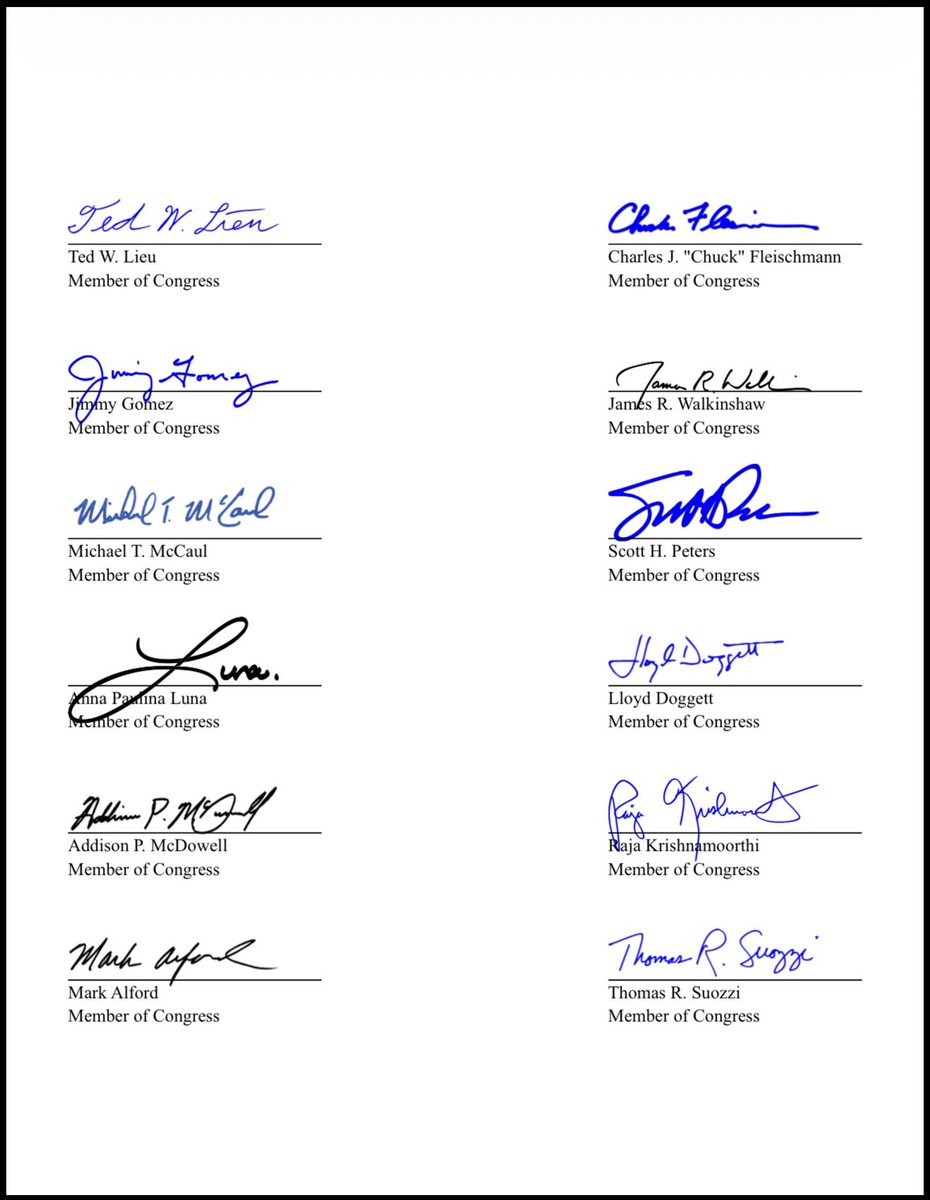 Ted W. Lieu
Ted W. Lieu
Member of Congress
Chuck Fleischmann
Charles J. "Chuck" Fleischmann
Member of Congress
Jimmy Gomez
Jimmy Gomez
Member of Congress
James R. Walkinshaw
Member of Congress
Michael T. McCaul
Michael T. McCaul
Member of Congress
Scott H. Peters
Member of Congress
Luna.
Anna Paulina Luna
Member of Congress
Lloyd Doggett
Lloyd Doggett
Member of Congress
Addison P. McDowell
Addison P. McDowell
Member of Congress
Raja Krishnamoorthi
Raja Krishnamoorthi
Member of Congress
Mark Alford
Mark Alford
Member of Congress
Thomas R. Suozzi
Thomas R. Suozzi
Member of Congress